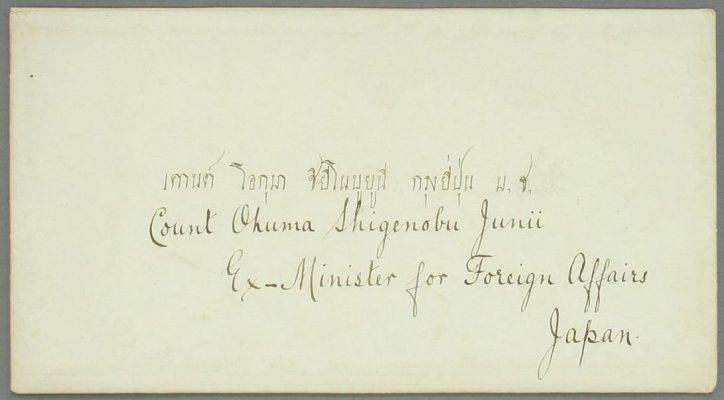 เคานต์ โอกุมา ชิฮิโนบูยูนี กรุงยี่ปุ่น ม.ช.
Count Okuma Shigenobu Junii
Ex-Minister for Foreign Affairs
Japan.